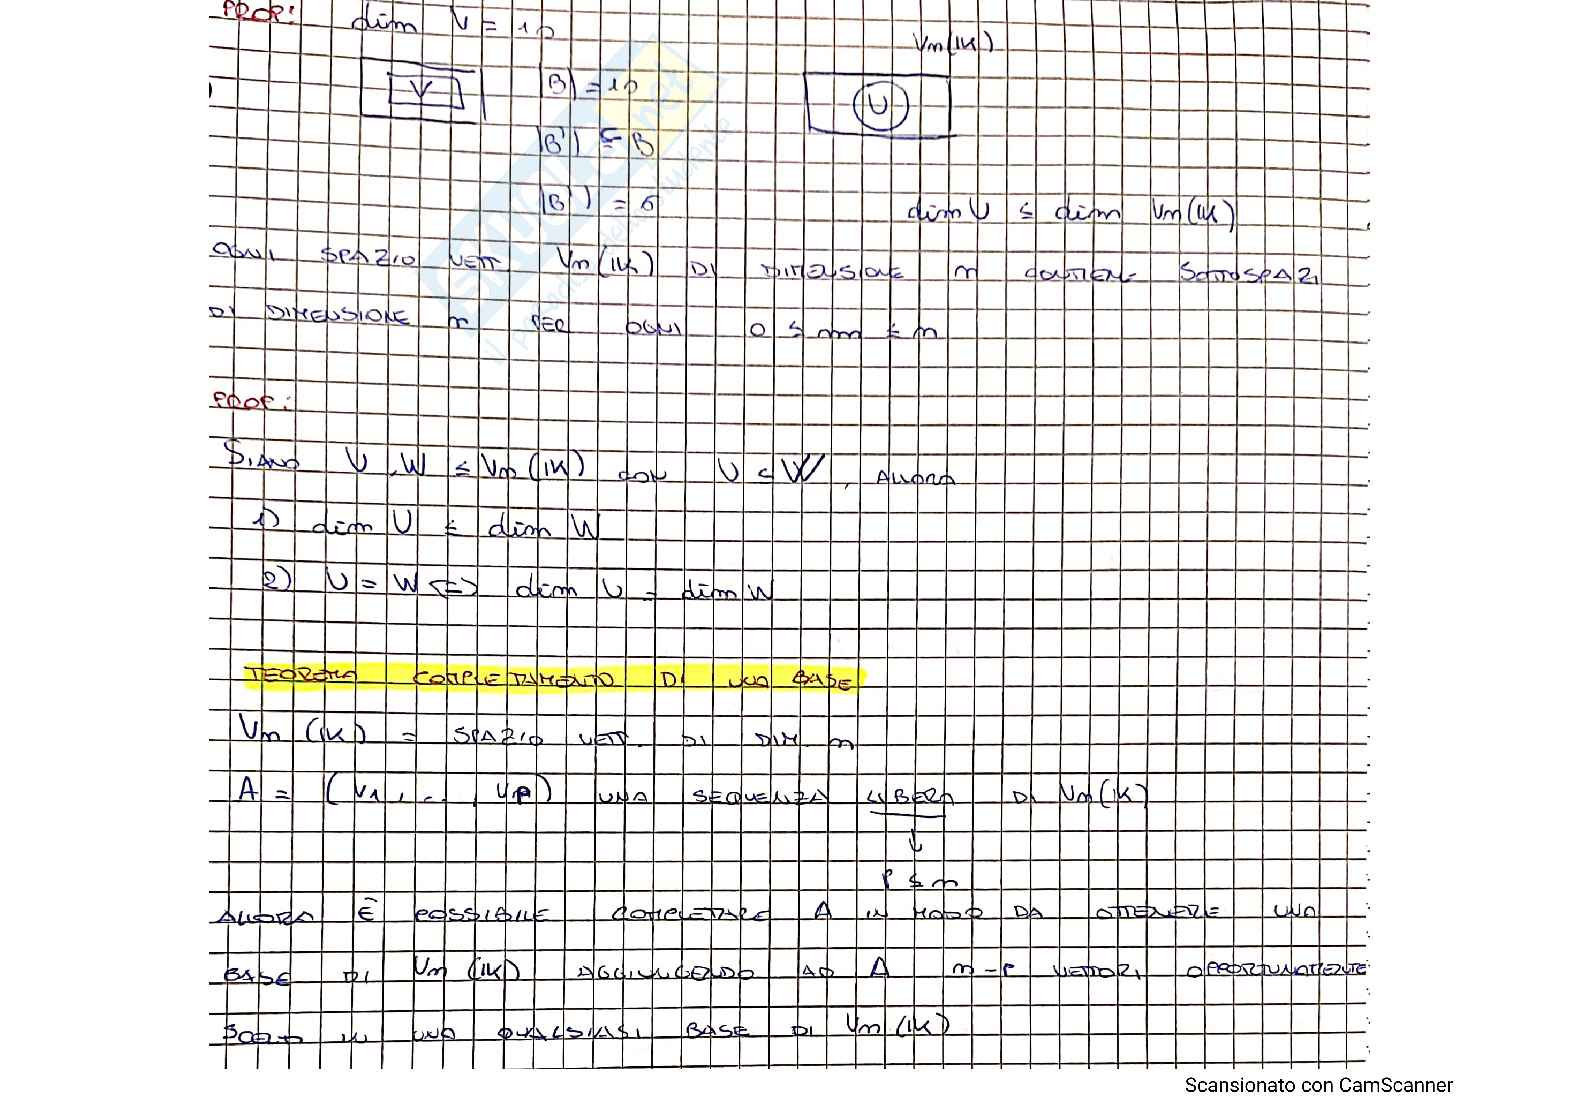 PROP:
dim V = 10
Vn(IK)
V
|B| = 10
U
|B'| ⊆ B
|B'| = 6
dim U ≤ dim Vn(IK)
OGNI SPAZIO VETT. Vn(IK) DI DIMENSIONE n CONTIENE SOTTOSPAZI
DI DIMENSIONE m PER OGNI 0 ≤ m ≤ n
PROP:
SIANO U, W ≤ Vn(IK) CON U ⊆ W, ALLORA
1) dim U ≤ dim W
2) U = W <=> dim U = dim W
TEOREMA COMPLETAMENTO DI UNA BASE
Vn(IK) = SPAZIO VETT. DI DIM n
A = (v1, .. , vp) UNA SEQUENZA LIBERA DI Vn(IK)
↓
P ≤ n
ALLORA È POSSIBILE COMPLETARE A IN MODO DA OTTENERE UNA
BASE DI Vn(IK) AGGIUNGENDO AD A n-P VETTORI OPPORTUNAMENTE
IN UNA QUALSIASI BASE DI Vn(IK)
Scansionato con CamScanner